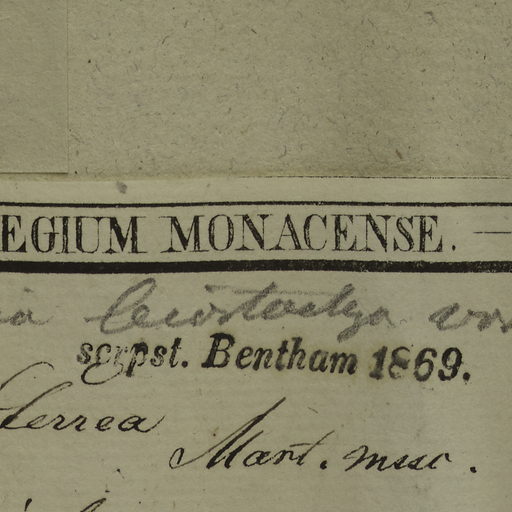 EGIUM MONACENSE.
ia leiostachya
scrpst. Bentham 1869.
Terrea
Mart. msc.